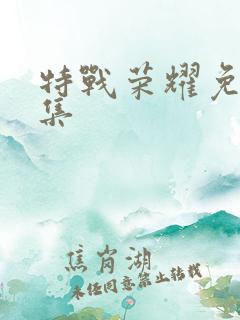 特戰荣耀免
集
焦肖湖
未经同意禁止转载